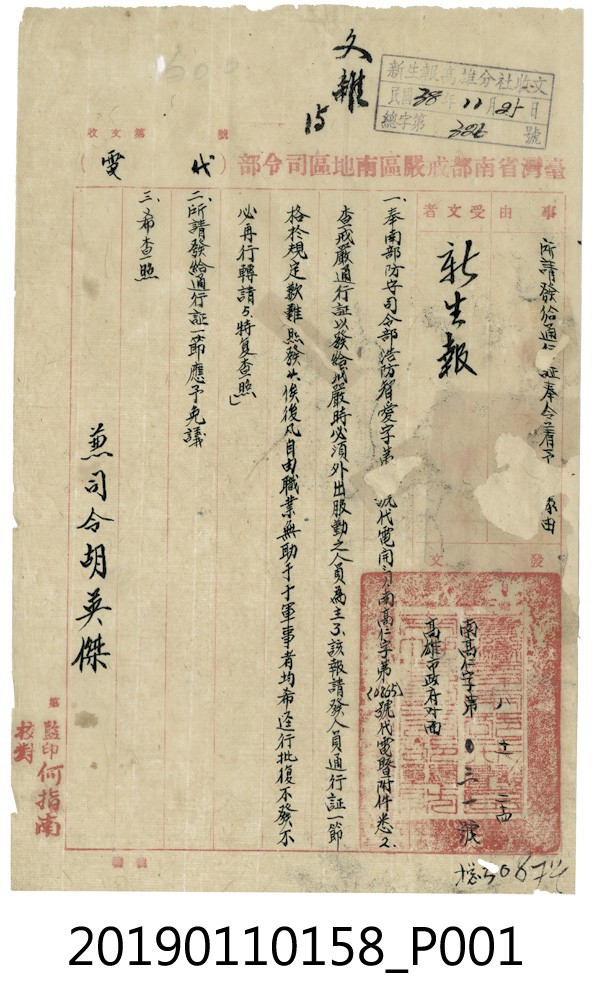 文雜
15
新生報高雄分社收文
民國38年11月25日
總字第322號
收文第　號
臺灣省南部戒嚴區南地區司令部(代電)
事由
所請發給通行証奉令著予　由
受文者
新生報
發文
卅八 十一 高
南高仁字第０三一號
高雄市政府對面
一、奉南部防守司令部浩防智愛字第　號代電開「1.南高仁字第(0865)號代電暨附件悉2.
查戒嚴通行証以發給戒嚴時必須外出服勤之人員為主3.該報請發人員通行証一節
格於規定歉難照發4.俟後凡自由職業無助于軍事者均希逕行批復不發不
必再行轉請5.特复查照」
二、所請發給通行証一節應予免議
三、希查照
兼司令胡英傑
第　號
監印何指南
校對
20190110158_P001